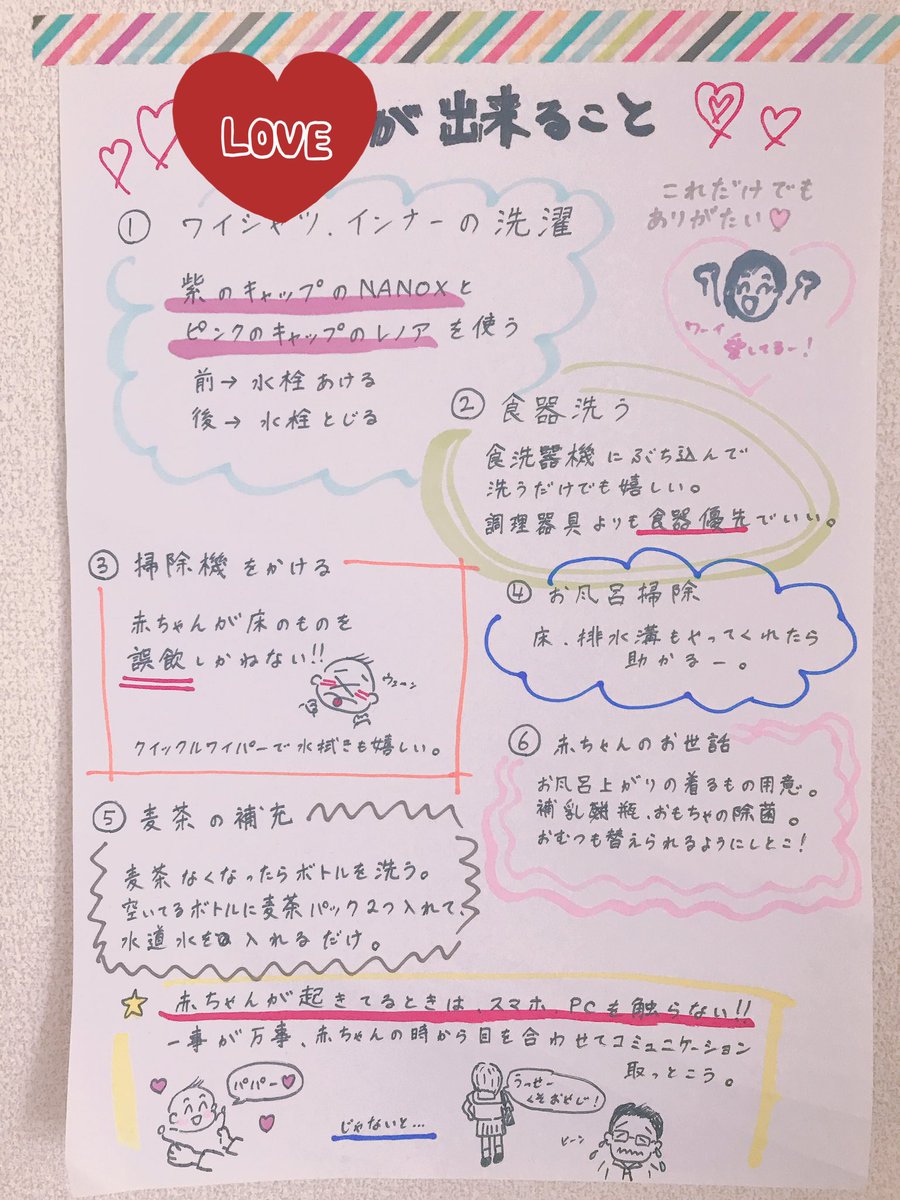 LOVE
が出来ること
これだけでも
ありがたい
① ワイシャツ、インナーの洗濯
紫のキャップのNANOXと
ピンクのキャップのレノアを使う
前→水栓あける
後→水栓とじる
ワーイ
愛してるー!
② 食器洗う
食洗器機にぶち込んで
洗うだけでも嬉しい。
調理器具よりも食器優先でいい。
③ 掃除機をかける
赤ちゃんが床のものを
誤飲しかねない!!
ウェーン
クイックルワイパーで水拭きも嬉しい。
④ お風呂掃除
床、排水溝もやってくれたら
助かるー。
⑤ 麦茶の補充
麦茶なくなったらボトルを洗う。
空いてるボトルに麦茶パック2つ入れて、
水道水を入れるだけ。
⑥ 赤ちゃんのお世話
お風呂上がりの着るもの用意。
補乳瓶、おもちゃの除菌。
おむつも替えられるようにしとこ!
赤ちゃんが起きてるときは、スマホ、PCを触らない!!
一事が万事、赤ちゃんの時から目を合わせてコミュニケーション
取っとこう。
パパー
じゃないと…
うっせー
くそおやじ!
ビーン